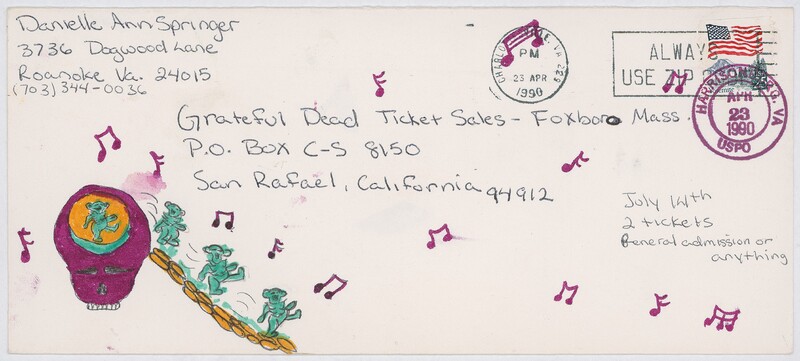 Danielle Ann Springer
3736 Dogwood Lane
Roanoke Va. 24015
(703) 344-0036
CHARLOTTESVILLE, VA
PM
23 APR
1990
ALWAY
USE ZIP
HARRISONBURG, VA
APR
23
1990
USPO
Grateful Dead Ticket Sales - Foxboro Mass.
P.O. Box C-S 8150
San Rafael, California 94912
July 14th
2 tickets
General admission or
anything